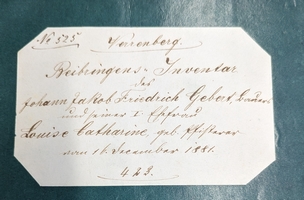 No 525
Dürrenberg.
Beibringens-Inventar
des
Johann Jakob Friedrich Gebert, Bauers
und seiner I. Ehefrau
Louise Catharine, geb. Pfisterer
vom 11. December 1881.
423.